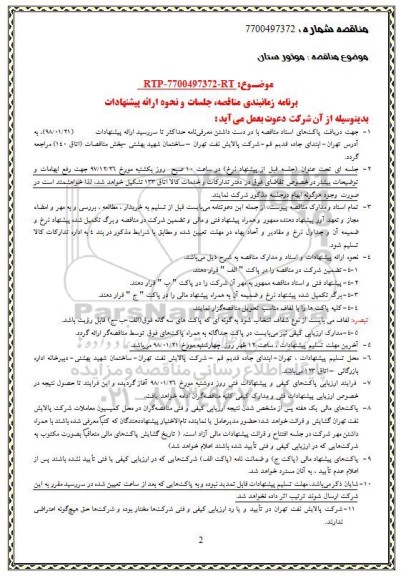 مناقصه شماره : 7700497372
موضوع مناقصه : موتور ستان
موضوع: RTP-7700497372-RT
برنامه زمانبندی مناقصه، جلسات و نحوه ارائه پیشنهادات
بدینوسیله از آن شرکت دعوت بعمل می آید:
۱- جهت دریافت پاکت‌های اسناد مناقصه با در دست داشتن معرفی‌نامه حداکثر تا سررسید ارائه پیشنهادات (۹۸/۰۱/۲۱)، به
آدرس تهران - ابتدای جاده قدیم قم - شرکت پالایش نفت تهران – ساختمان شهید بهشتی - بخش مناقصات (اتاق ۱۴۰) مراجعه
گردد.
۲- جلسه ای تحت عنوان (جلسه قبل از پیشنهاد نرخ) در ساعت ۱۰ صبح روز یکشنبه مورخ ۹۷/۱۲/۲۶ جهت رفع ابهامات و
توضیحات بیشتر در خصوص تقاضای فوق در دفتر تدارکات و خدمات کالا اتاق ۱۳۳ تشکیل خواهد شد، لذا خواهشمند است در
صورت وجود هرگونه ابهام در جلسه مذکور شرکت نمایند.
۳- تمام اسناد و مدارک مناقصه پیوست، از جمله این دعوتنامه می‌بایست قبل از تسلیم به خریدار، مطالعه، بررسی و به مهر و امضاء
مجاز و تعهد آور پیشنهاد دهنده ممهور و همراه پیشنهاد فنی و مالی و تضمین شرکت در مناقصه و برگ تکمیل شده پیشنهاد نرخ و
ضمیمه آن و جداول نرخ و مقادیر و آحاد بهاء در مهلت تعیین شده و مطابق با شرایط مذکور در بند ۴ به اداره تدارکات کالا
تسلیم شود.
۴- نحوه ارائه پیشنهادات و اسناد و مدارک مناقصه به شرح ذیل می‌باشد.
۴-۱- تضمین شرکت در مناقصه را در پاکت " الف " قرار دهند.
۴-۲- پیشنهاد فنی و اسناد مناقصه ممهور به مهر آن شرکت را در پاکت " ب " قرار دهند.
۴-۳- برگ تکمیل شده پیشنهاد نرخ و ضمیمه آن به همراه پیشنهاد مالی را در پاکت " ج " قرار دهند.
۴-۴- کلیه پاکت ها را با لفاف مناسب تحویل مناقصه‌گزار نمایند.
تبصره: لفاف می بایست از نوع شفاف انتخاب شود به گونه ای که پاکت های سه گانه فوق (الف-ب-ج) قابل رویت باشد.
۴-۵- مدارک ارزیابی کیفی نیز می‌بایست در پاکت جداگانه به همراه پاکت‌های فوق توسط مناقصه‌گر ارائه گردد.
۵- آخرین مهلت تسلیم پیشنهادات، ساعت ۱۲ ظهر روز چهارشنبه مورخ ۹۸/۰۱/۲۱ می‌باشد.
۶- محل تسلیم پیشنهادات، تهران - ابتدای جاده قدیم قم – شرکت پالایش نفت تهران – ساختمان شهید بهشتی - دبیرخانه اداره
بازرگانی – اتاق ۱۳۳ می‌باشد.
۷- فرایند ارزیابی پاکت‌های کیفی و پیشنهادات فنی روز دوشنبه مورخ ۹۸/۰۱/۲۶ آغاز گردیده و این فرایند تا حصول نتیجه در
خصوص ارزیابی پیشنهادات فنی و مدارک کیفی کلیه مناقصه‌گران ادامه خواهد یافت.
۸- پاکت‌های مالی یک هفته پس از مشخص شدن نتیجه ارزیابی کیفی و فنی مناقصه‌گران در محل کمیسیون معاملات شرکت پالایش
نفت تهران گشایش و قرائت خواهد شد؛ حضور مدیرعامل یا نماینده تام‌الاختیار پیشنهاددهندگان که کتباً معرفی شده باشند با همراه
داشتن مهر شرکت در جلسه افتتاح و قرائت پیشنهادات مالی آزاد است. ( تاریخ گشایش پاکت‌های مالی متعاقباً بصورت مکتوب به
شرکت‌هایی که در ارزیابی کیفی و فنی تأیید شده باشند اعلام خواهد شد)
۹- پاکت‌های پیشنهاد مالی (پاکت ج) و ضمانت نامه (پاکت الف) شرکت‌هایی که در ارزیابی کیفی یا فنی تأیید نشده باشند پس از
اعلام عدم تأیید، به آنان مسترد خواهد شد.
۱۰- شایان ذکر می‌باشد، مهلت تسلیم پیشنهادات قابل تمدید نبوده و به پاکت‌هایی که بعد از ساعت تعیین شده در سررسید مقرر به این
شرکت ارسال شوند ترتیب اثر داده نخواهد شد.
۱۱- شرکت پالایش نفت تهران در تأیید و یا رد ارزیابی کیفی و فنی شرکت‌ها مختار بوده و شرکت‌ها حق هیچ‌گونه اعتراضی
ندارند.
2